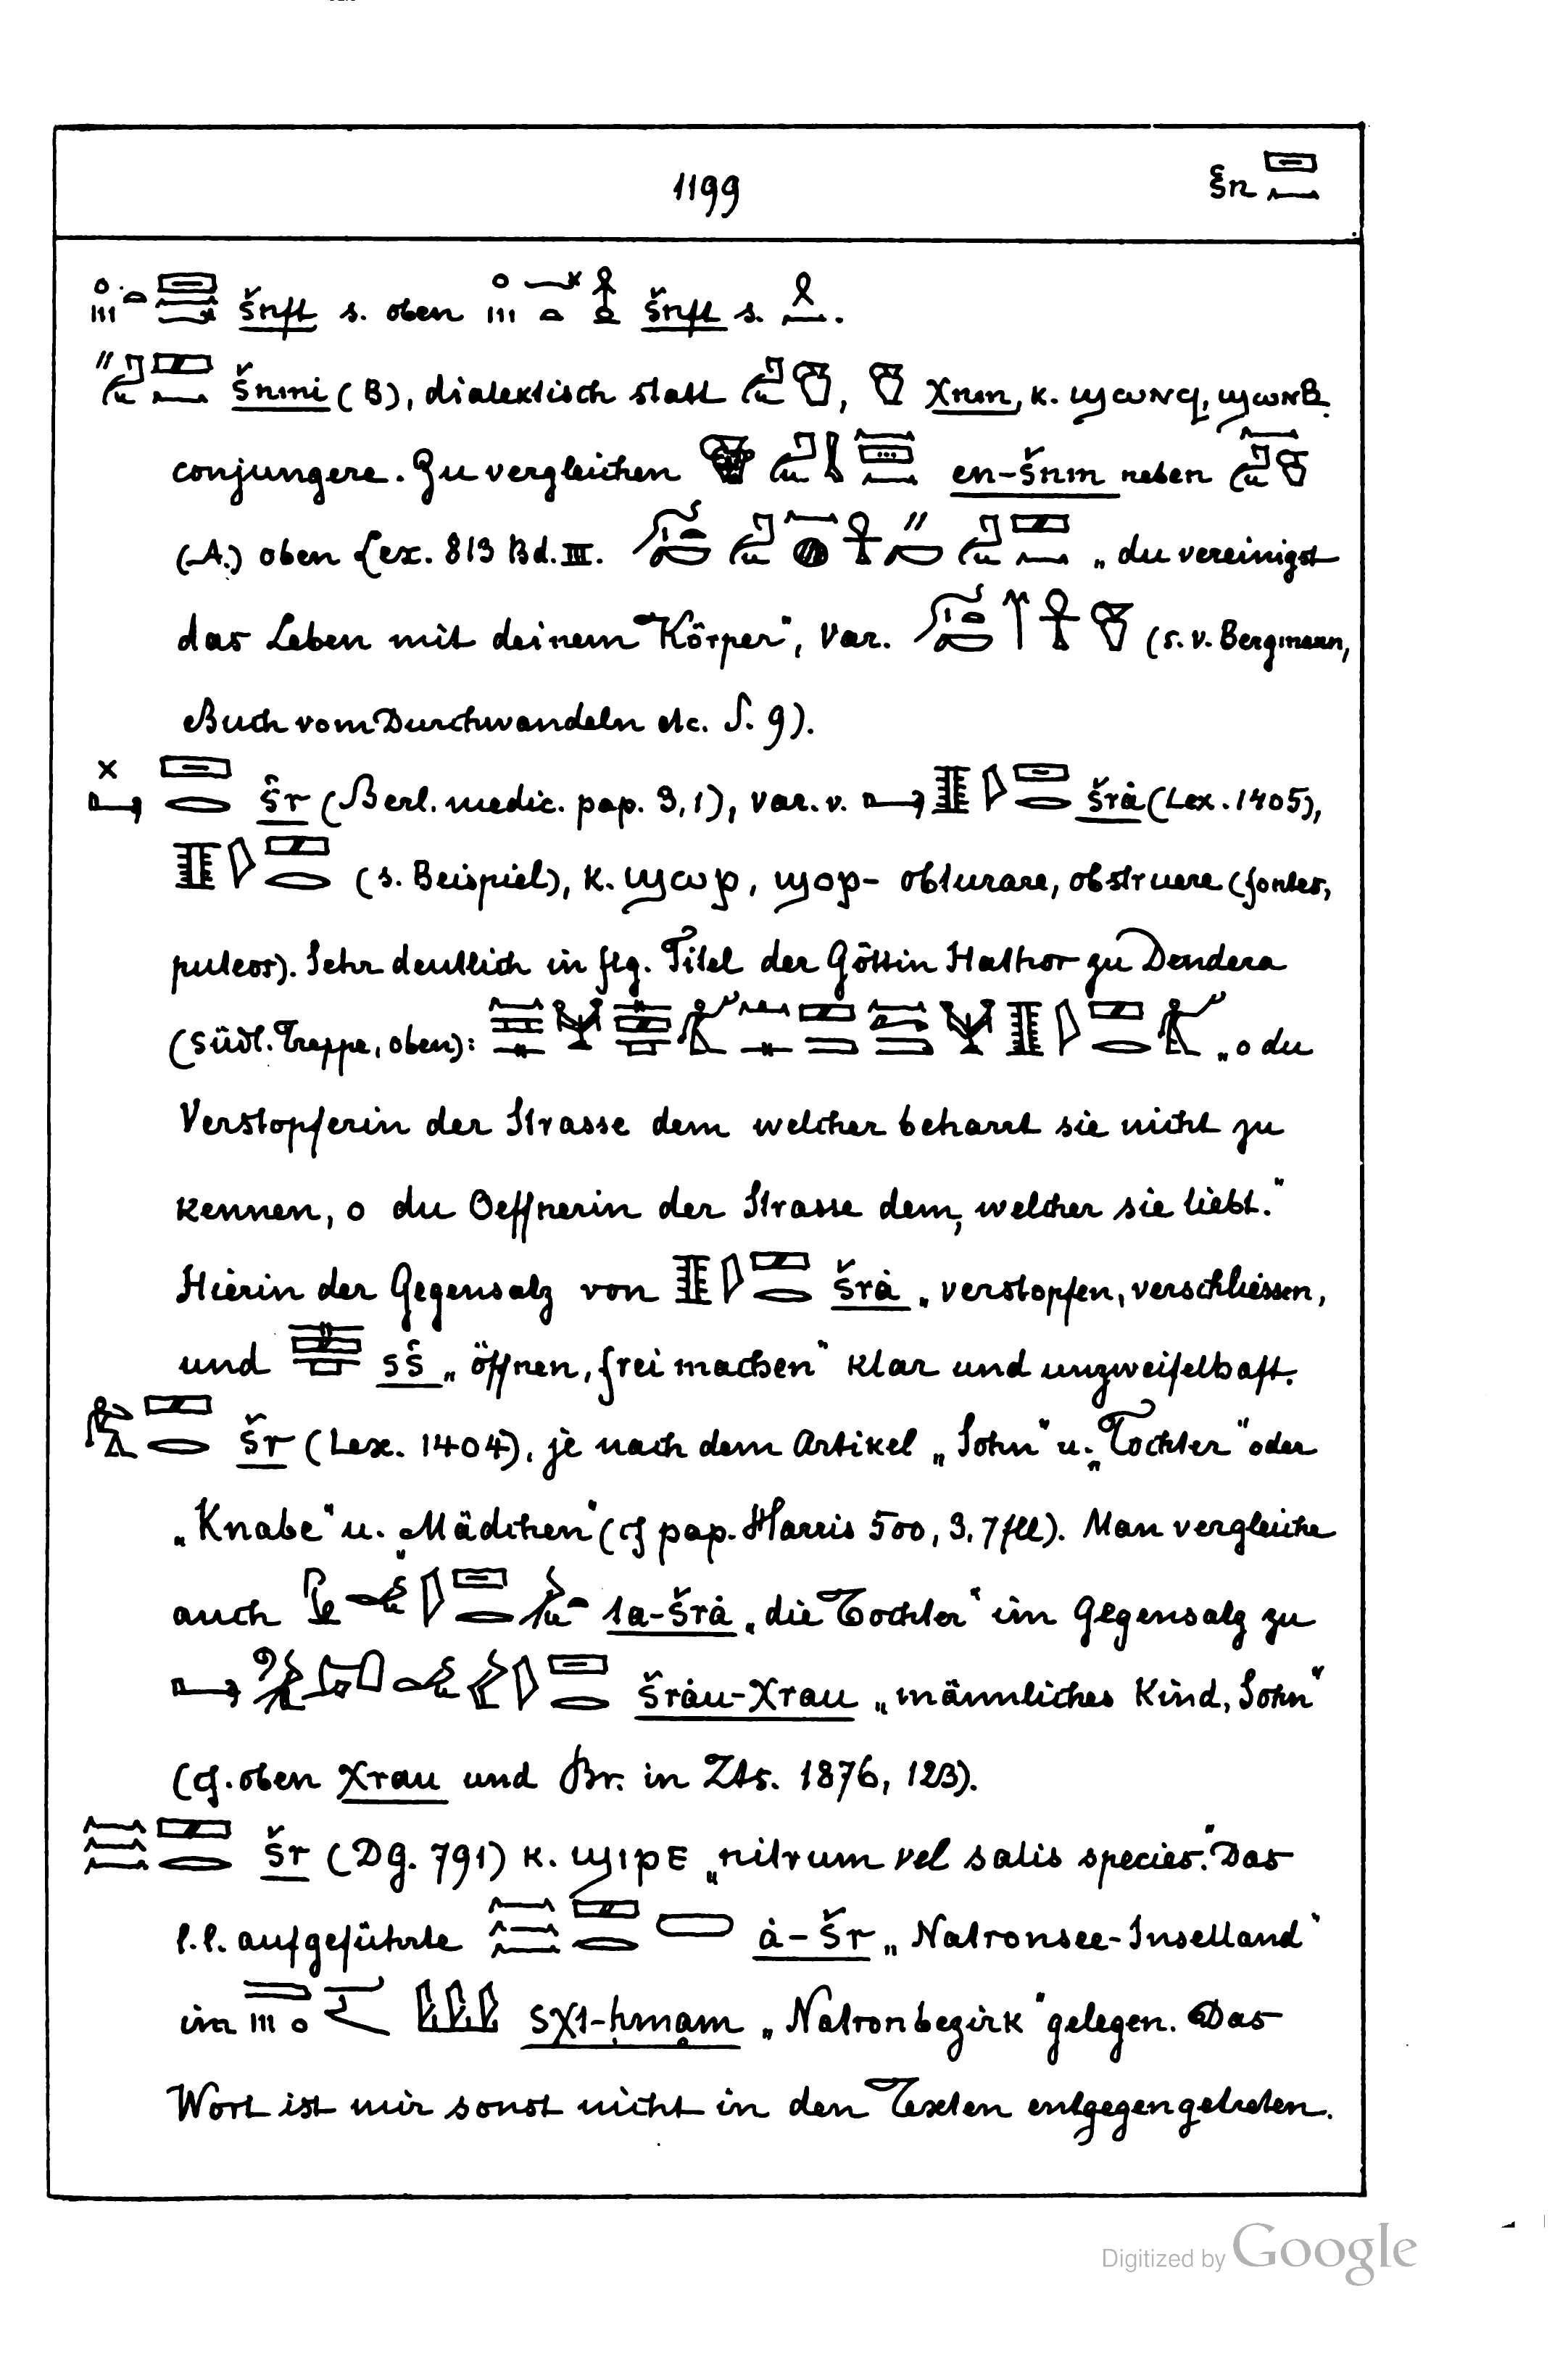 1199 šn
šnft s. oben šnft s.
šnmi (B), dialektisch statt χnm, K. ϣωⲛϥ, ϣωⲛⲃ
conjungere. Zu vergleichen en-šnm neben
(A.) oben Lex. 813 Bd. III. „du vereinigst
das Leben mit deinem Körper“, Var. (s. v. Bergmann,
Buch vom Durchwandeln etc. S. 9).
šr (Berl. medic. pap. 3,1), var. v. šrȧ (Lex. 1405),
(s. Beispiel), K. ϣⲱⲣ, ϣⲟⲣ- obturare, obstruere (fontes,
puteos). Sehr deutlich in flg. Titel der Göttin Hathor zu Dendera
(Südl. Treppe, oben): „o du
Verstopferin der Strasse dem welcher beharrt sie nicht zu
kennen, o du Oeffnerin der Strasse dem, welcher sie liebt.“
Hierin der Gegensatz von šrȧ „verstopfen, verschliessen,
und sš „öffnen, frei machen“ klar und unzweifelhaft.
šr (Lex. 1404), je nach dem Artikel „Sohn“ u. „Tochter“ oder
„Knabe“ u. „Mädchen“ (cf pap. Harris 500, 3,7 fll). Man vergleiche
auch ta-šrȧ „die Tochter“ im Gegensatz zu
šrȧu-χrau „männliches Kind, Sohn“
(cf. oben χrau und Br. in Zts. 1876, 123).
šr (DG. 791) K. ϣⲓⲣⲉ „nitrum vel salis species.“ Das
l.l. aufgeführte ȧ-šr „Natronsee-Inselland“
im sχt-ḥmam „Natronbezirk“ gelegen. Das
Wort ist mir sonst nicht in den Texten entgegengetreten.
Digitized by Google